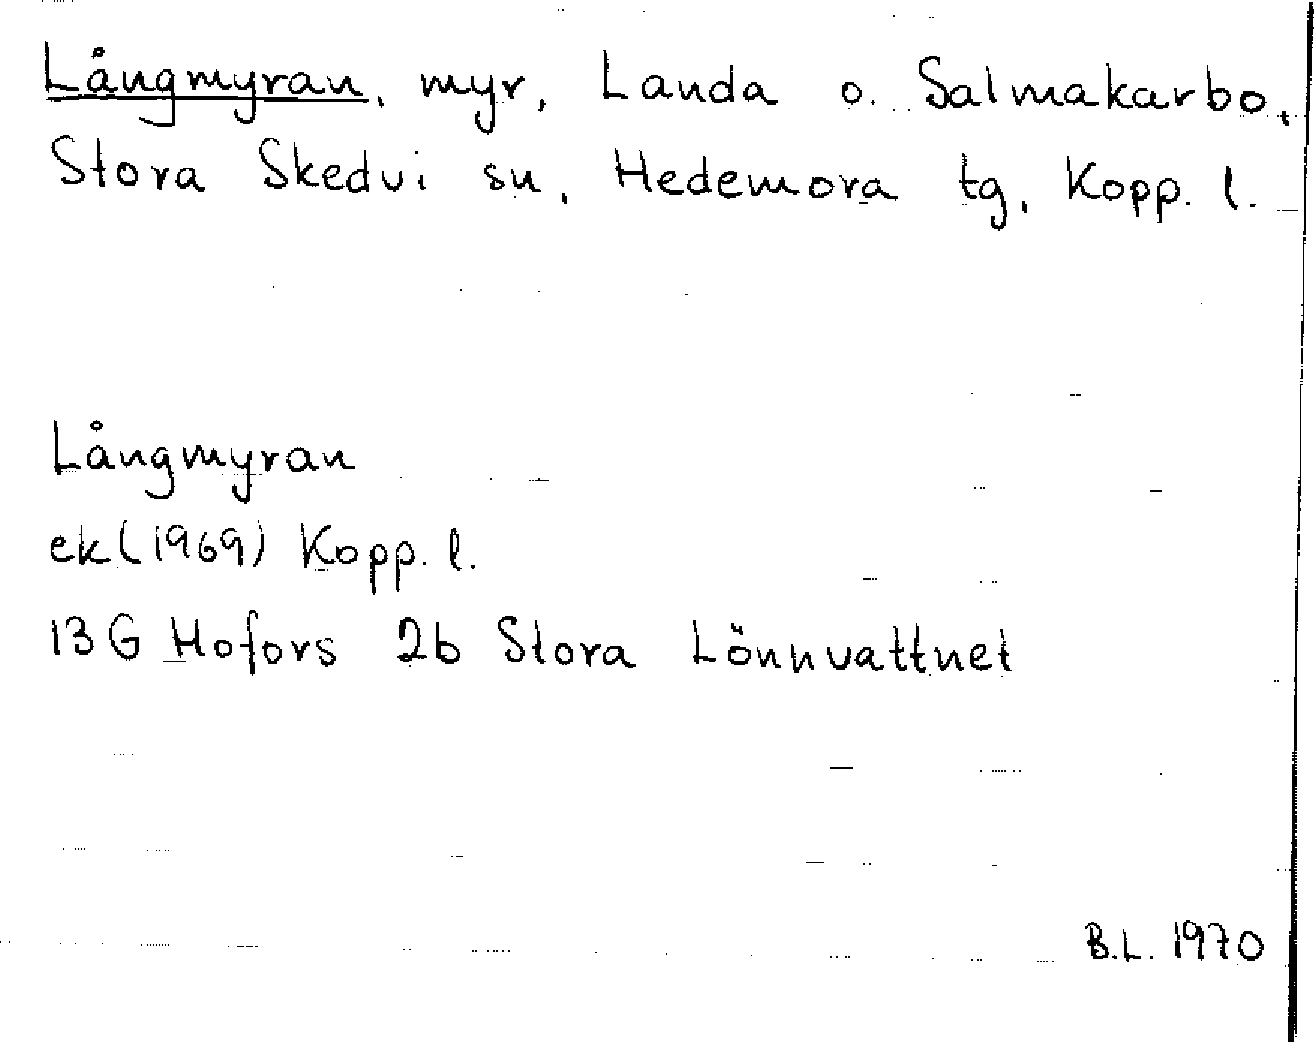 Långmyran, myr, Landa o. Salmakarbo,
Stora Skedvi sn, Hedemora tg, Kopp. l.
Långmyran
ek (1969) Kopp. l.
13 G Hofors 2b Stora Lönnvattnet
B.L. 1970